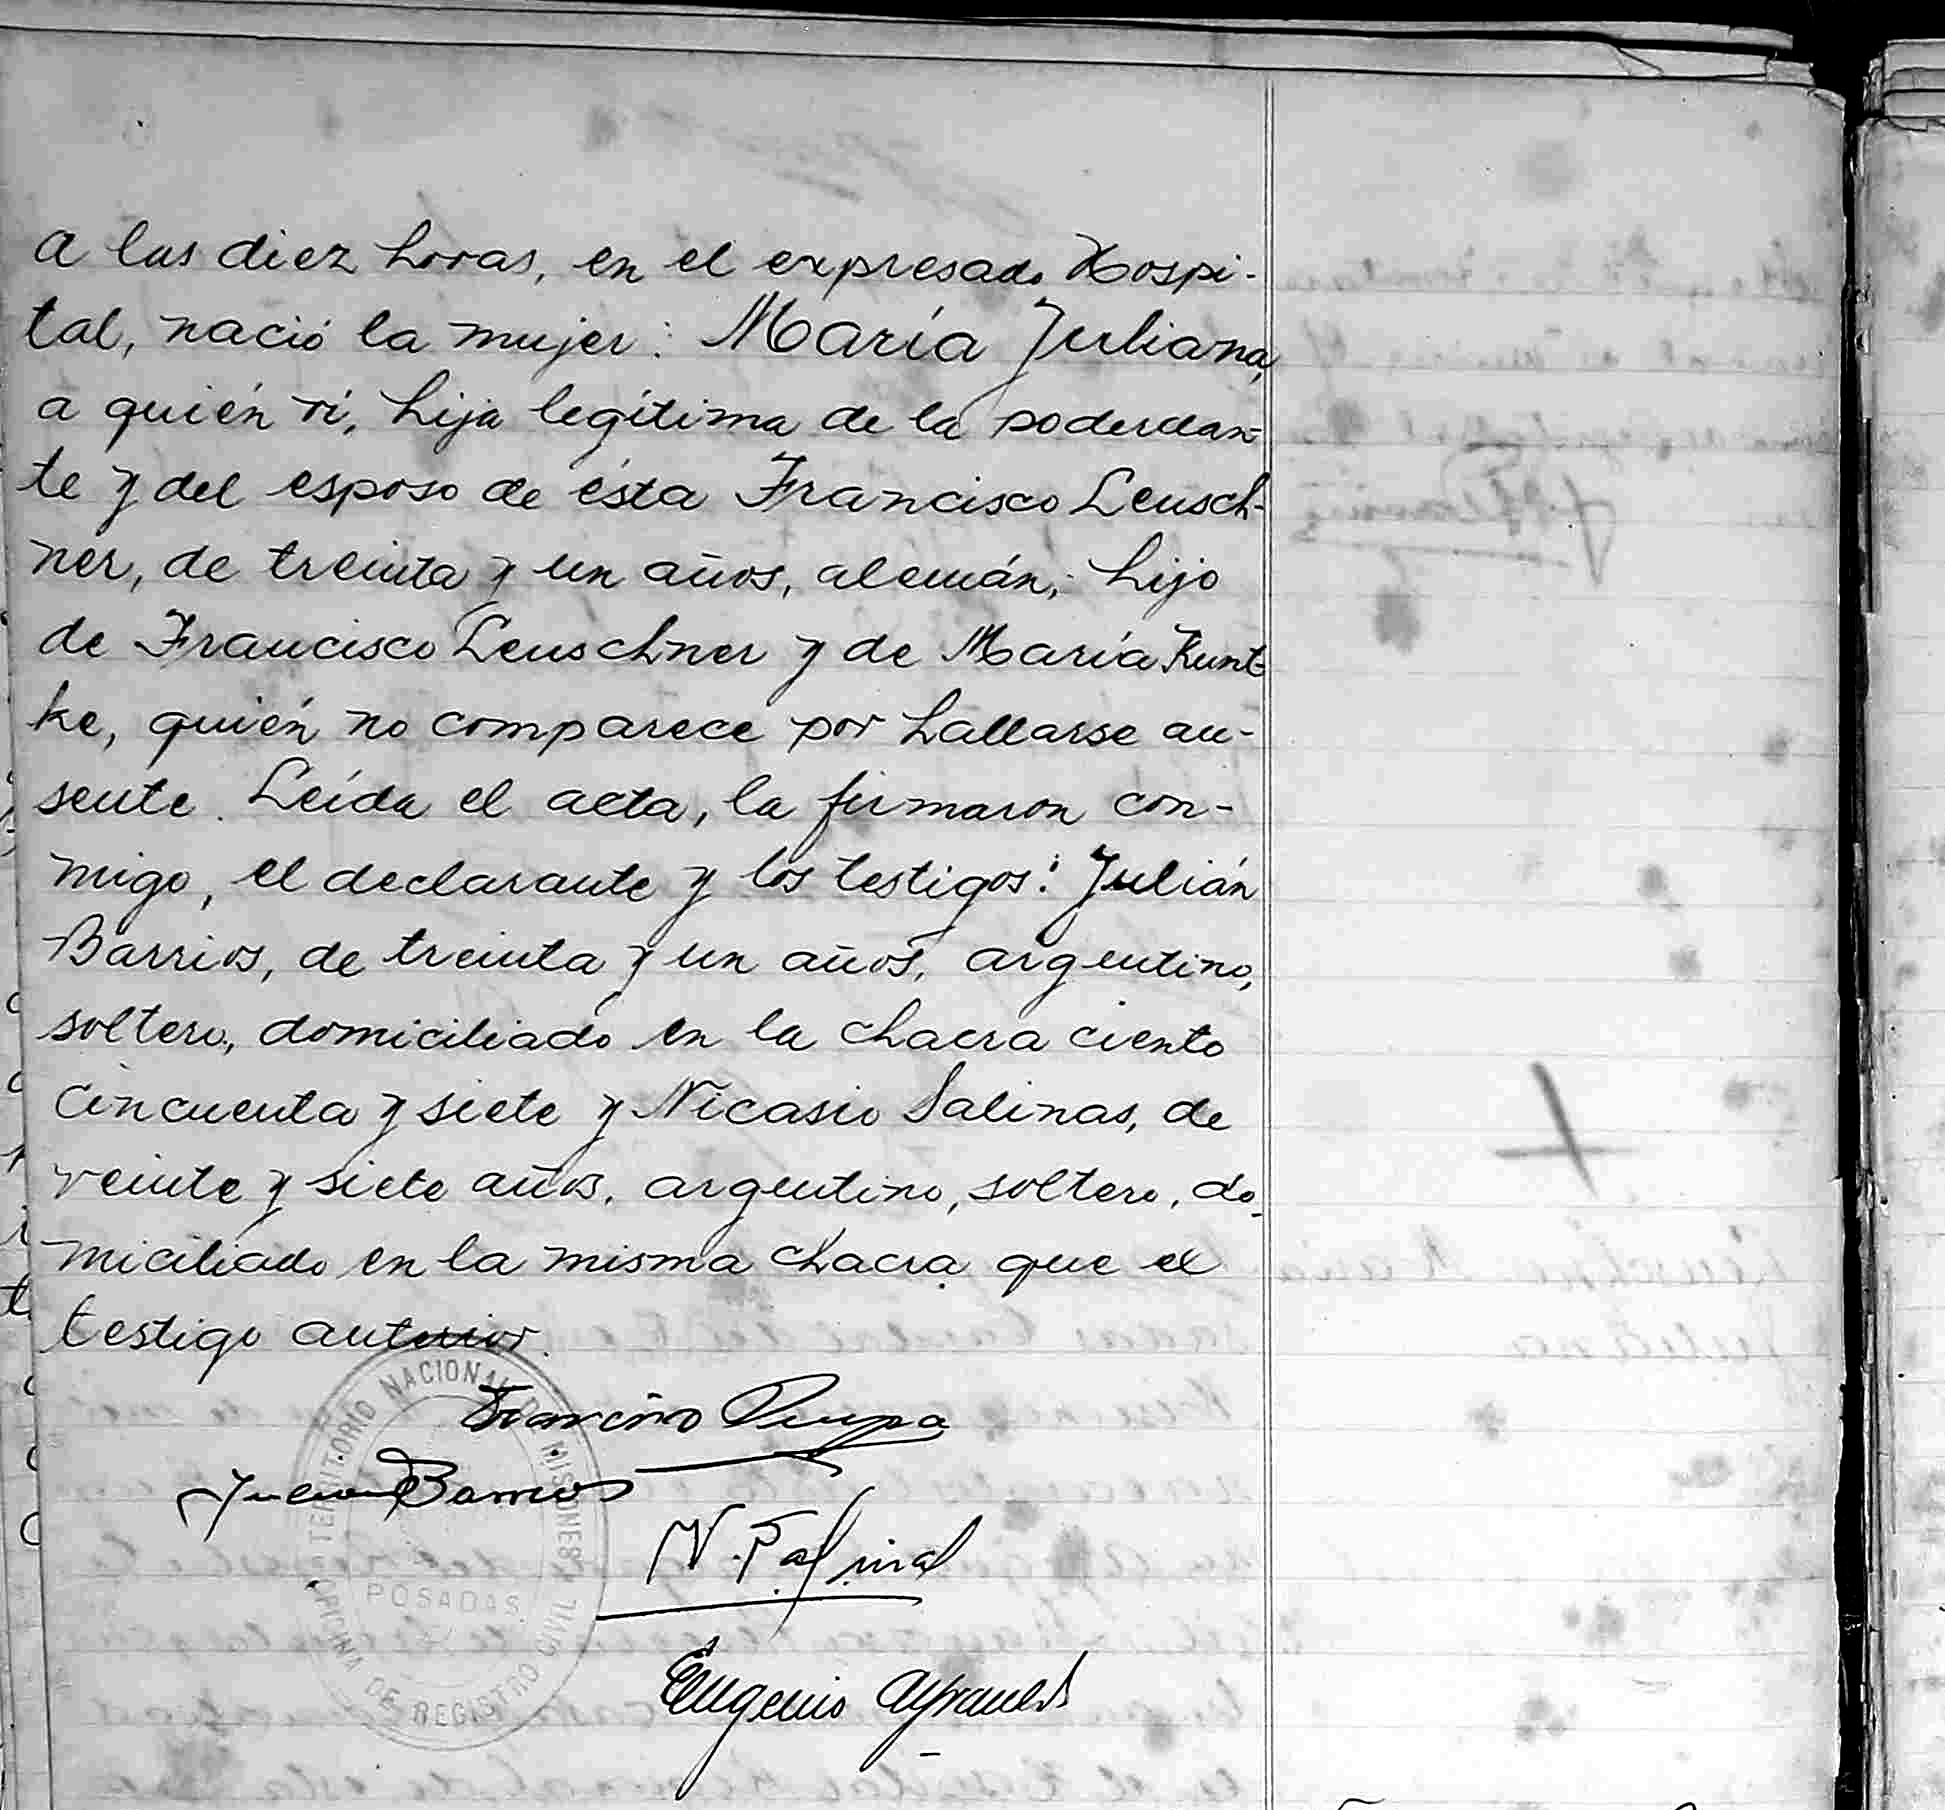 a las diez horas, en el expresado Hospi-
tal, nació la mujer: María Juliana,
a quién vi, hija legítima de la poderdan-
te y del esposo de ésta Francisco Leusch-
ner, de treinta y un años, alemán, hijo
de Francisco Leuschner y de María Kunt-
ke, quién no comparece por hallarse au-
sente. Leída el acta, la firmaron con-
migo, el declarante y los testigos: Julián
Barrios, de treinta y un años, argentino,
soltero, domiciliado en la chacra ciento
cincuenta y siete y Nicasio Salinas, de
veinte y siete años, argentino, soltero, do-
miciliado en la misma chacra que el
testigo anterior.
TERRITORIO NACIONAL DE MISIONES
Julian Barrios
N. Salinas
POSADAS
OFICINA DE REGISTRO CIVIL
Eugenio